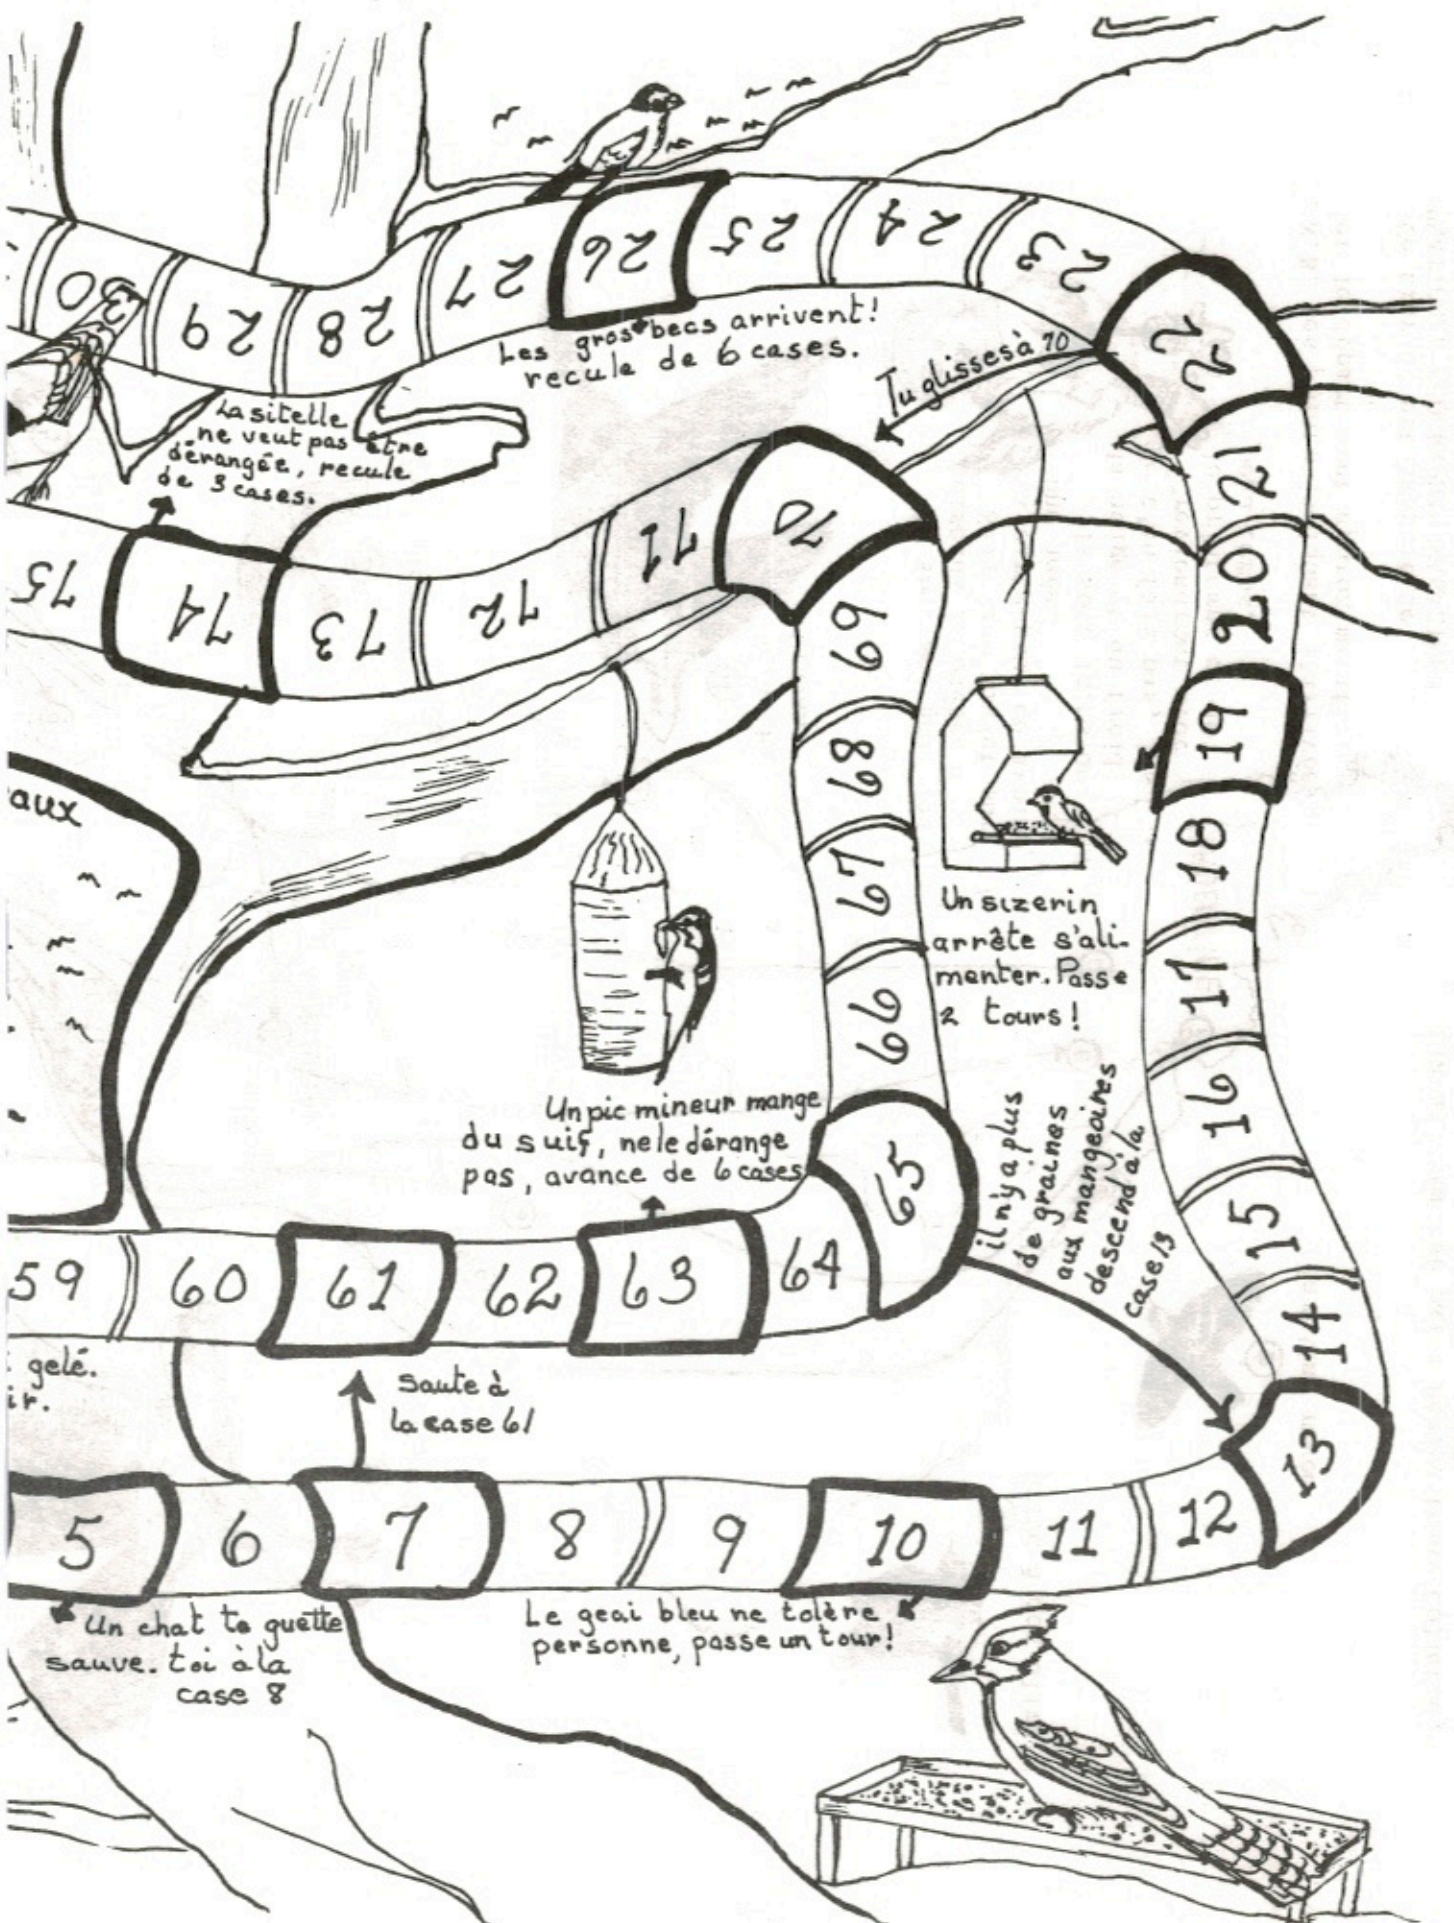 30
29
28
27
26
25
24
23
22
Les gros becs arrivent!
recule de 6 cases.
Tu glisses à 70
21
20
19
18
17
16
15
14
13
La sitelle
ne veut pas être
dérangée, recule
de 3 cases.
75
74
73
72
71
70
69
68
67
66
65
64
63
62
61
60
59
aux
Un sizerin
arrête s'ali-
menter. Passe
2 tours!
Un pic mineur mange
du suif, ne le dérange
pas, avance de 6 cases
il n'y a plus
de graines
aux mangeoires
descend à la
case 13
gelé.
ir.
Saute à
la case 61
5
6
7
8
9
10
11
12
Un chat te guette
sauve. toi à la
case 8
Le geai bleu ne tolère
personne, passe un tour!